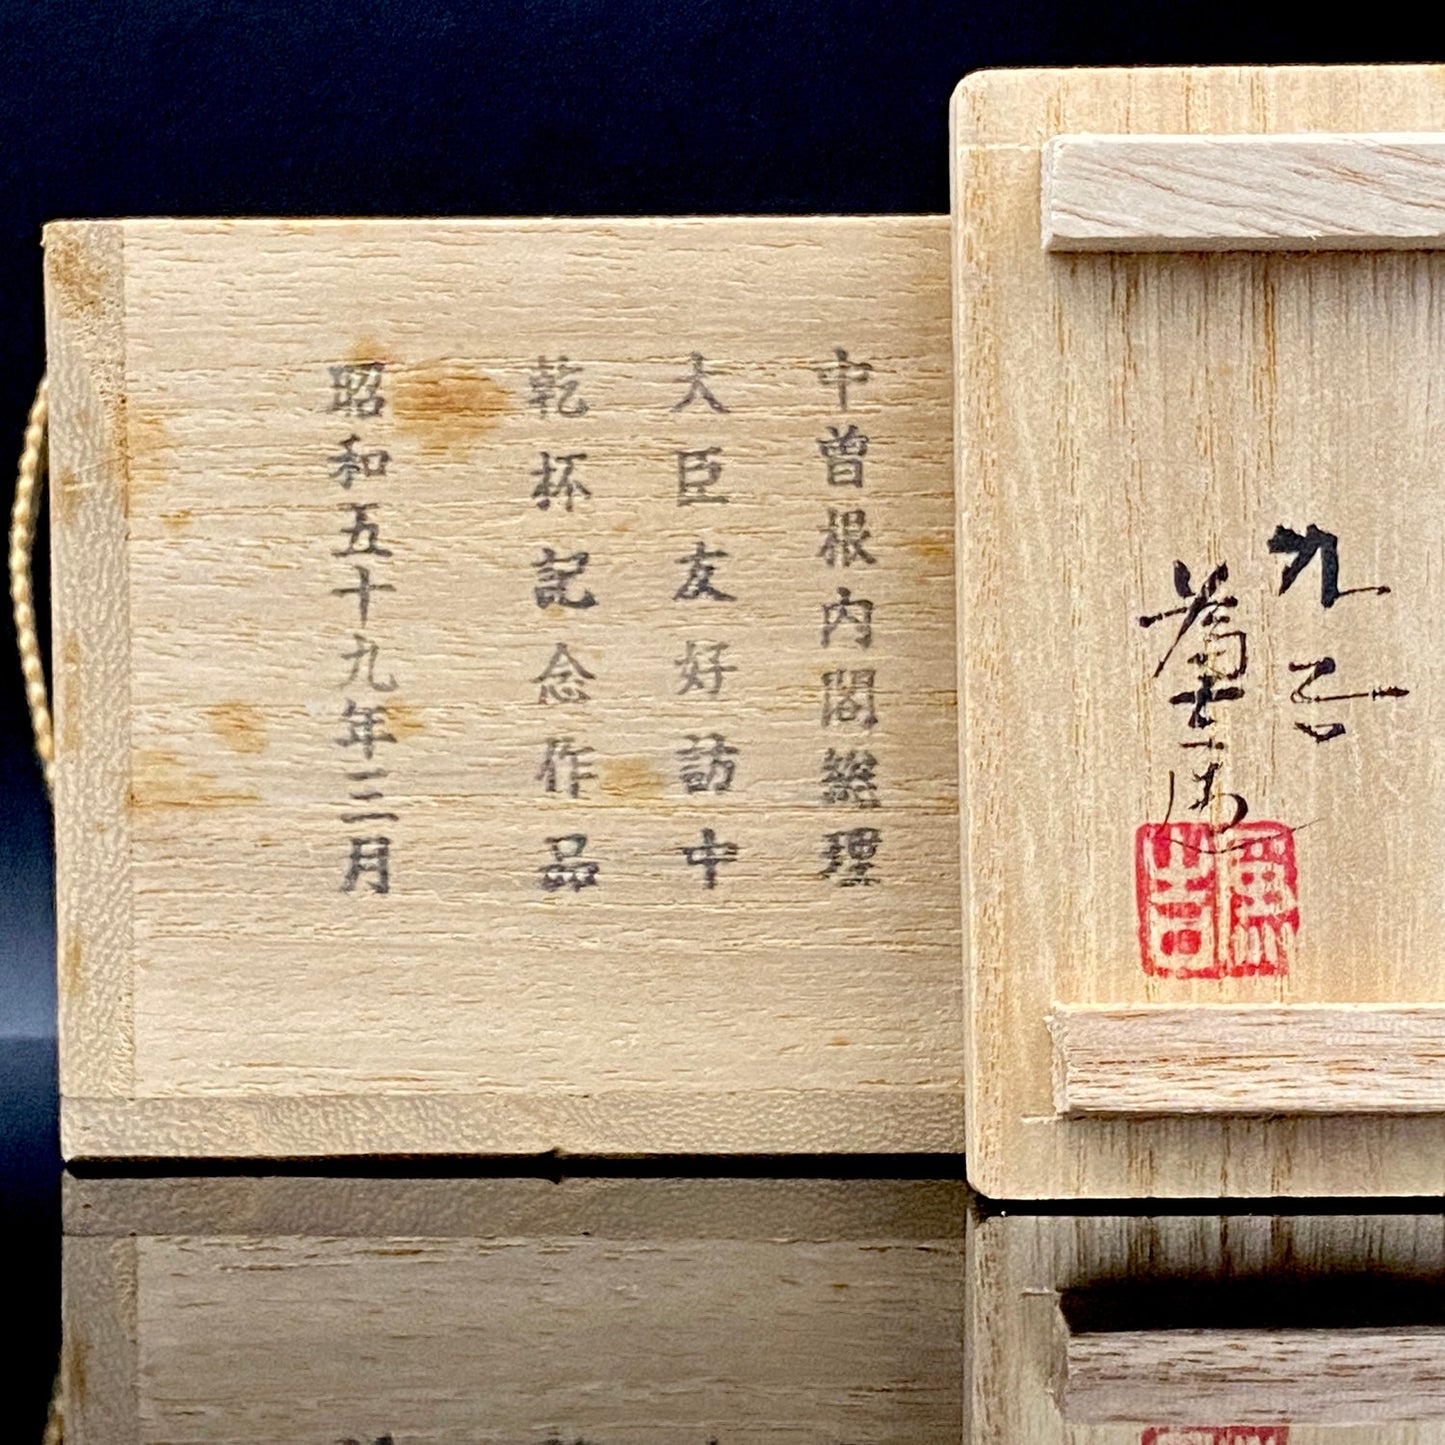 九谷
中曽根内閣総理
大臣友好訪中
乾杯記念作品
昭和五十九年三月